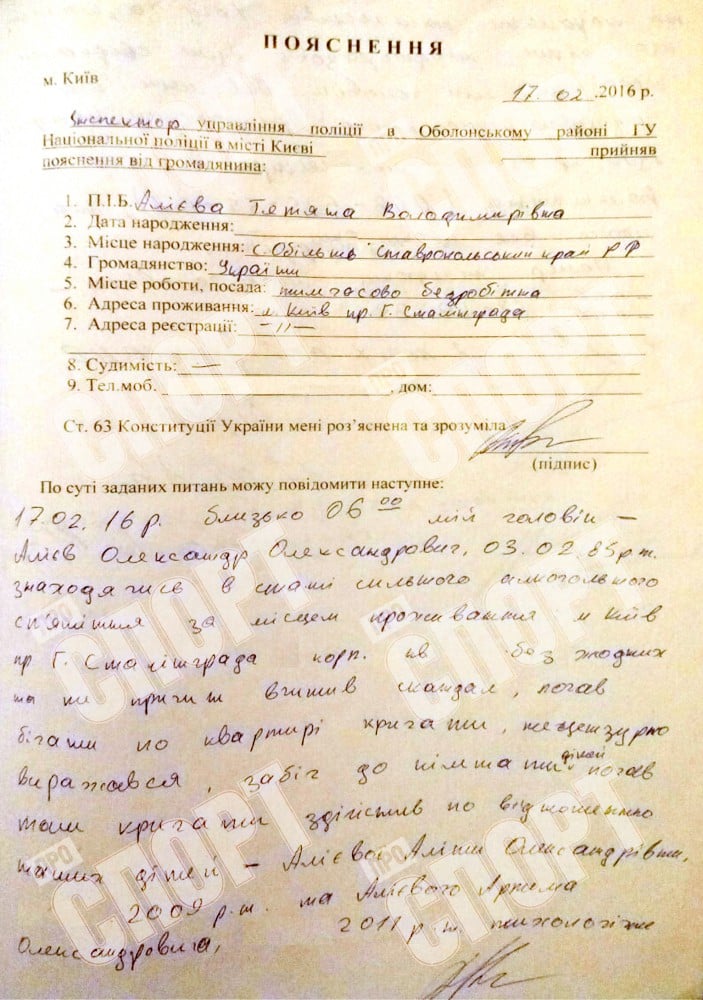 ПОЯСНЕННЯ
м. Київ
17. 02 .2016 р.
Інспектор управління поліції в Оболонському районі ГУ
Національної поліції в місті Києві прийняв
пояснення від громадянина:
1. П.І.Б. Алієва Тетяна Володимирівна
2. Дата народження:
3. Місце народження: с. Обільне Ставропольський край РФ
4. Громадянство: України
5. Місце роботи, посада: тимчасово безробітна
6. Адреса проживання: м. Київ пр. Г. Сталінграда
7. Адреса реєстрації: -||-
8. Судимість: —
9. Тел.моб. , дом:
Ст. 63 Конституції України мені роз'яснена та зрозуміла
(підпис)
По суті заданих питань можу повідомити наступне:
17.02.16 р. близько 06 00 мій чоловік –
Алієв Олександр Олександрович, 03.02.85 р.н.
знаходячись в стані сильного алкогольного
сп'яніння за місцем проживання м Київ
пр Г. Сталінграда корп. кв без жодних
на те причин вчинив скандал, почав
бігати по квартирі кричати, нецензурно
виражався, забіг до кімнати дітей почав
там кричати здійснив по відношенню
наших дітей – Алієвої Аліни Олександрівни,
2009 р.н. та Алієвого Артема
Олександровича, 2011 р.н. психологічне
ПРО СПОРТ